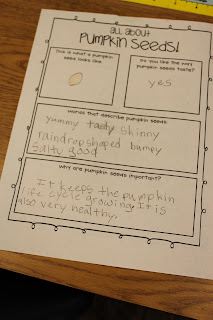 all about
Pumpkin Seeds!
This is what a pumpkin
seed looks like.
Do you like the way
pumpkin seeds taste?
yes
Words that describe pumpkin seeds:
yummy tasty skinny
raindropshaped bumpy
Salty good
Why are pumpkin seeds important?
It keeps the pumpkin
life cycle growing. It is
also very healthy.